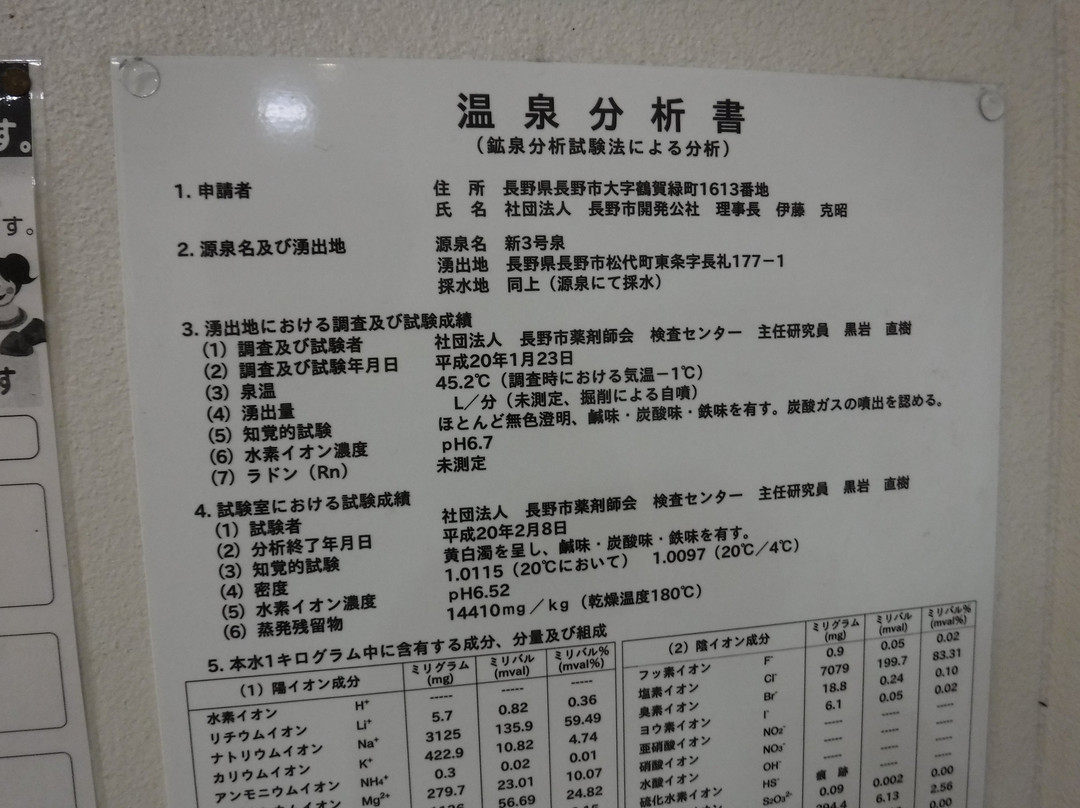 す。
す。
す
温泉分析書
(鉱泉分析試験法による分析)
1. 申請者 住所 長野県長野市大字鶴賀緑町1613番地
氏名 社団法人 長野市開発公社 理事長 伊藤 克昭
2. 源泉名及び湧出地 源泉名 新3号泉
湧出地 長野県長野市松代町東条字長礼177-1
採水地 同上(源泉にて採水)
3. 湧出地における調査及び試験成績
(1) 調査及び試験者 社団法人 長野市薬剤師会 検査センター 主任研究員 黒岩 直樹
(2) 調査及び試験年月日 平成20年1月23日
(3) 泉温 45.2℃(調査時における気温-1℃)
(4) 湧出量 L/分(未測定、掘削による自噴)
(5) 知覚的試験 ほとんど無色澄明、鹹味・炭酸味・鉄味を有す。炭酸ガスの噴出を認める。
(6) 水素イオン濃度 pH6.7
(7) ラドン(Rn) 未測定
4. 試験室における試験成績
(1) 試験者 社団法人 長野市薬剤師会 検査センター 主任研究員 黒岩 直樹
(2) 分析終了年月日 平成20年2月8日
(3) 知覚的試験 黄白濁を呈し、鹹味・炭酸味・鉄味を有す。
(4) 密度 1.0115(20℃において) 1.0097(20℃/4℃)
(5) 水素イオン濃度 pH6.52
(6) 蒸発残留物 14410mg/kg(乾燥温度180℃)
5. 本水1キログラム中に含有する成分、分量及び組成
(1) 陽イオン成分 ミリグラム(mg) ミリバル(mval) ミリバル%(mval%)
水素イオン H⁺ ----- ----- -----
リチウムイオン Li⁺ 5.7 0.82 0.36
ナトリウムイオン Na⁺ 3125 135.9 59.49
カリウムイオン K⁺ 422.9 10.82 4.74
アンモニウムイオン NH₄⁺ 0.3 0.02 0.01
Mg²⁺ 279.7 23.01 10.07
56.69 24.82
(2) 陰イオン成分 ミリグラム(mg) ミリバル(mval) ミリバル%(mval%)
フッ素イオン F⁻ 0.9 0.05 0.02
塩素イオン Cl⁻ 7079 199.7 83.31
臭素イオン Br⁻ 18.8 0.24 0.10
ヨウ素イオン I⁻ 6.1 0.05 0.02
亜硝酸イオン NO₂⁻ ----- ----- -----
硝酸イオン NO₃⁻ ----- ----- -----
水酸イオン OH⁻ ----- ----- -----
硫化水素イオン HS⁻ 痕跡
S₂O₃²⁻ 0.09 0.002 0.00
6.13 2.56
0.00